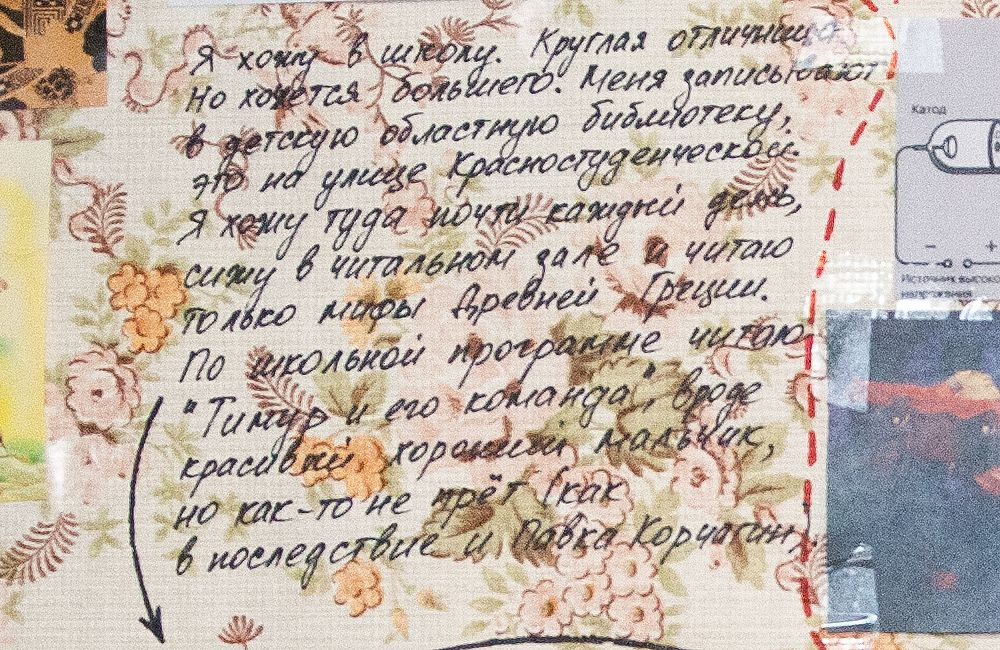 Я хожу в школу. Круглая отличница
Но хочется большего. Меня записывают
в детскую областную библиотеку,
это на улице Красностуденческой.
Я хожу туда почти каждый день,
сижу в читальном зале и читаю
только мифы Древней Греции.
По школьной программе читаю
"Тимур и его команда", вроде
красивый хороший мальчик,
но как-то не прёт (как
в последствие и Павка Корчагин).
Катод
− +
Источник высоко
напряжения